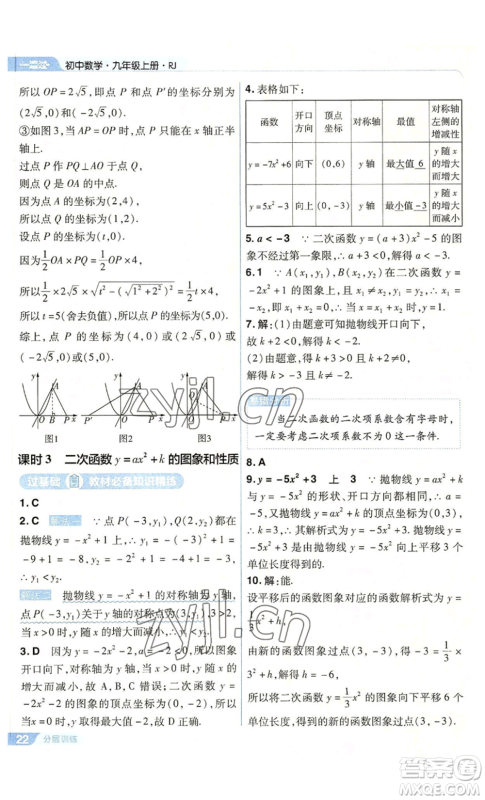 一遍过
初中数学·九年级上册·RJ
所以 OP=2√5,即点 P 和点 P′的坐标分别为
(2√5,0)或(-2√5,0).
③如图 3,当 AP=OP 时,点 P 只能在 x 轴正
半轴上.
过点 P 作 PQ⊥AO 于点 Q,
则点 Q 是 OA 的中点.
因为点 A 的坐标为(2,4),
所以点 Q 的坐标为(1,2).
设点 P 的坐标为(t,0).
因为 1/2 OA×PQ=1/2 OP×4,
所以 1/2×2√5×√(t²-(√(1²+2²))²)=1/2 t×4,
所以 t=5(舍去负值).
综上,点 P 的坐标为(4,0)或(2√5,0)或
(-2√5,0)或(5,0).
图1 图2 图3
课时 3 二次函数 y=ax²+k 的图象和性质
过基础 教材必备知识精练
1. C
2. C ∵点 P(-3,y₁),Q(2,y₂)都在
抛物线 y=-x²+1 上,∴y₁=-(-3)²+1=
-9+1=-8,y₂=-2²+1=-4+1=-3,
∴y₁<y₂.
抛物线 y=-x²+1 的对称轴为 y 轴,
点 P(-3,y₁)关于 y 轴的对称点为(3,y₁),3>2,
当 x>0 时,y 随 x 的增大而减小,∴y₁<y₂.
3. D 因为 y=-2x²-2,a=-2<0,所以图象
开口方向向下,对称轴为 y 轴,顶点坐标为
(0,-2),故 A,B,C 错误;二次函数 y=
-2x²-2 的图象可由二次函数 y=-2x² 的图
象向下平移 2 个单位长度得到,故 D 正确.
22 分层训练
4. 表格如下.
函数 开口方向 顶点坐标 对称轴 最值 对称轴左侧的增减性
y=-7x²+6 向下 (0,6) y 轴 最大值 6 y 随 x 的增大而增大
y=5x²-3 向上 (0,-3) y 轴 最小值 -3 y 随 x 的增大而减小
5. a<-3 ∵二次函数 y=(a+3)x²-5 的图
象不经过第一象限,∴a+3<0,解得 a<-3.
6. 1 ∵A(x₁,y₁),B(x₂,y₂)在二次函数 y=
-2x²+1 的图象上,且 x₁≠x₂,y₁=y₂,∴x₁=
-x₂,∴x₁+x₂=0.∴当 x=0 时,y=1.
7. 解:(1)由题意可知抛物线开口向下,
故 k+2<0,解得 k<-2.
(2)由题意,得 k+3>0 且 k+2≠0,
解得 k>-3 且 k≠-2.
当二次函数的二次项系数含有字母时,
一定要考虑二次项系数不为 0.
8. A
9. y=-5x²+3 上 3 ∵抛物线 y=ax²+c 与
y=-5x² 的形状、大小、开口方向都相同,∴a=
-5.又∵抛物线的顶点坐标是(0,3),∴c=3,
∴其解析式为 y=-5x²+3,
它是由抛物线 y=-5x² 向上平移 3 个
单位长度得到的.
10. 解:能.
设平移后的函数图象对应的函数解析式为 y=
1/3 x²+h,
由新的函数图象过点(3,-3),得 -3=1/3×3²+
h,解得 h=-6,
所以将二次函数 y=1/3 x² 的图象向下平移 6 个
单位长度,新的函数图象过点(3,-3).
zyjl.cn
zyjl.cn
作业精灵